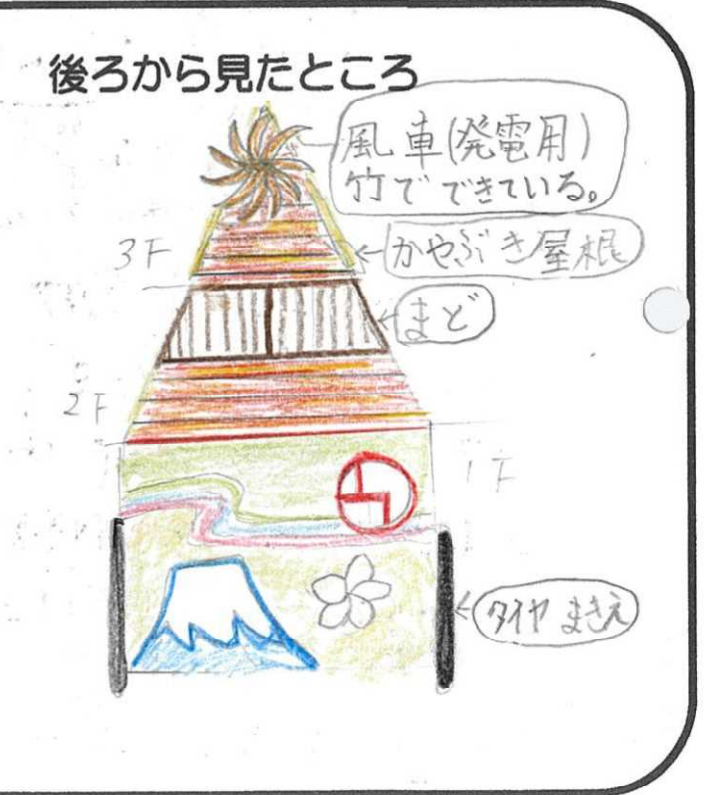 後ろから見たところ
風車(発電用)
竹でできている。
3F
かやぶき屋根
まど
2F
1F
タイヤ まきえ